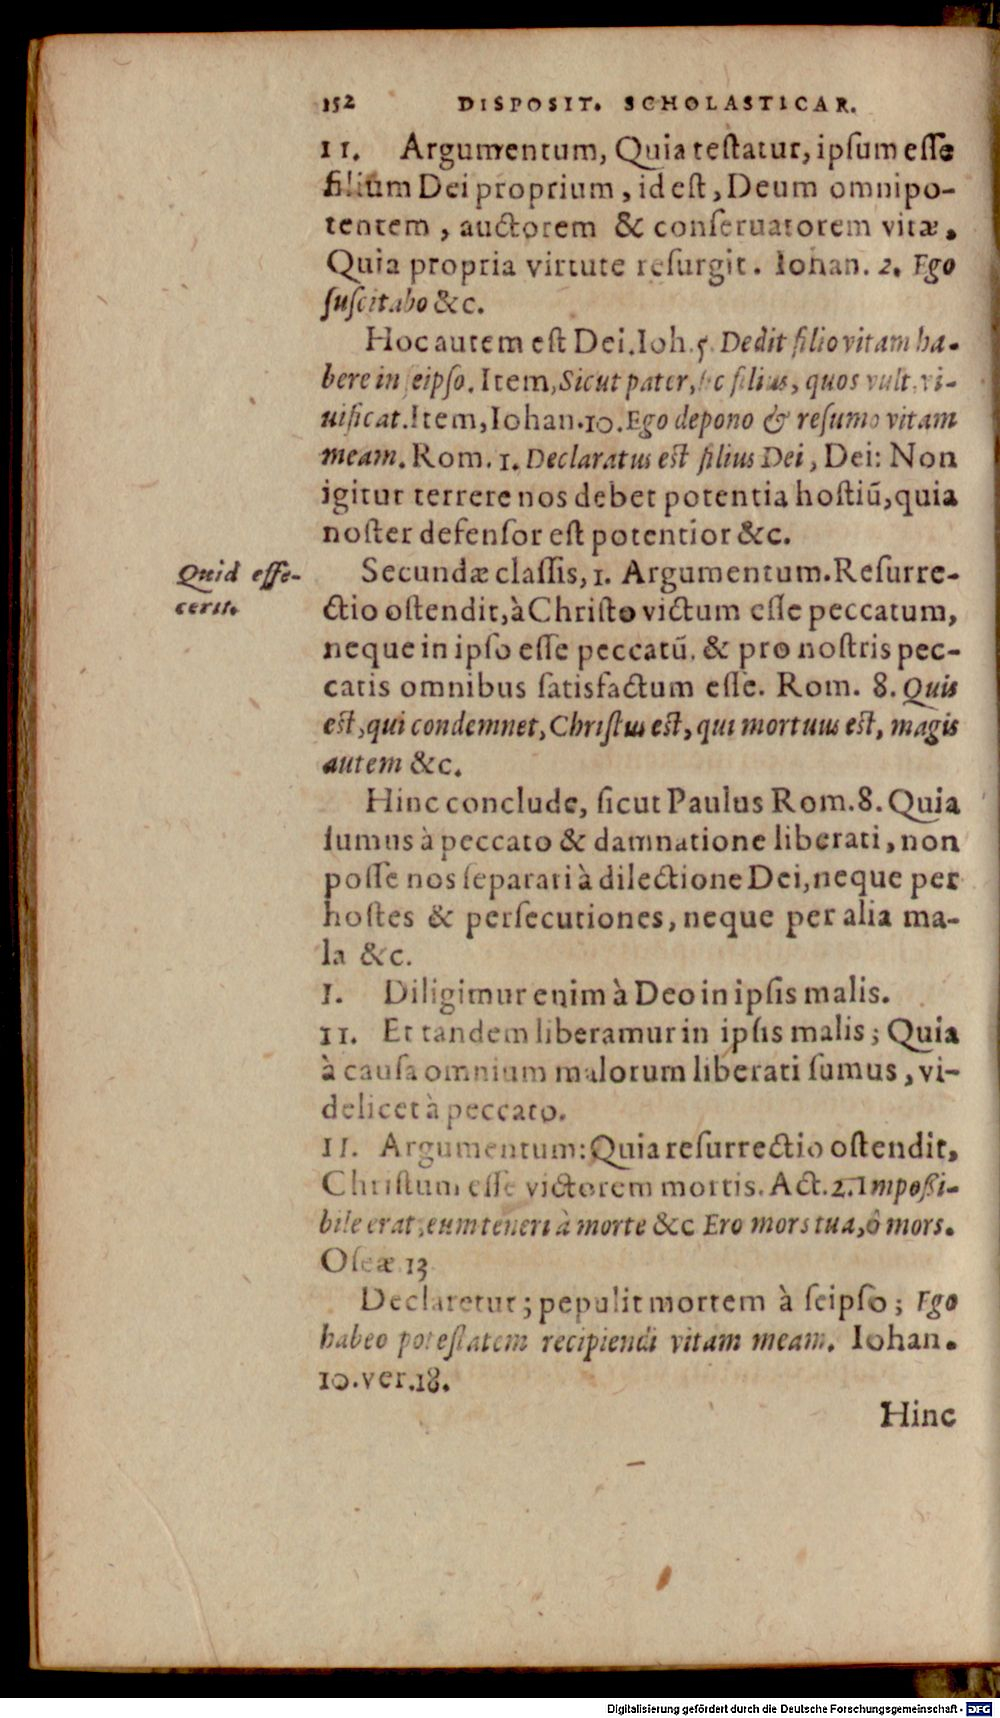 152 DISPOSIT. SCHOLASTICAR.
II. Argumentum, Quia testatur, ipsum esse
filium Dei proprium, id est, Deum omnipo-
tentem, auctorem & conseruatorem vitæ.
Quia propria virtute resurgit. Iohan. 2. Ego
suscitabo &c.
Hoc autem est Dei. Ioh. 5. Dedit filio vitam ha-
bere in seipso. Item, Sicut pater, sic filius, quos vult, vi-
uificat. Item, Iohan. 10. Ego depono & resumo vitam
meam. Rom. 1. Declaratus est filius Dei, Dei: Non
igitur terrere nos debet potentia hostiũ, quia
noster defensor est potentior &c.
Quid effe-
cerit.
Secundæ classis, 1. Argumentum. Resurre-
ctio ostendit, à Christo victum esse peccatum,
neque in ipso esse peccatũ. & pro nostris pec-
catis omnibus satisfactum esse. Rom. 8. Quis
est, qui condemnet, Christus est, qui mortuus est, magis
autem &c.
Hinc conclude, sicut Paulus Rom. 8. Quia
sumus à peccato & damnatione liberati, non
posse nos separari à dilectione Dei, neque per
hostes & persecutiones, neque per alia ma-
la &c.
I. Diligimur enim à Deo in ipsis malis.
II. Et tandem liberamur in ipsis malis; Quia
à causa omnium malorum liberati sumus, vi-
delicet à peccato.
II. Argumentum: Quia resurrectio ostendit,
Christum esse victorem mortis. Act. 2. Impoßi-
bile erat, eum teneri à morte &c Ero mors tua, ô mors.
Oseæ 13
Declaretur; pepulit mortem à seipso; Ego
habeo potestatem recipiendi vitam meam. Iohan.
10. ver. 18.
Hinc
Digitalisierung gefördert durch die Deutsche Forschungsgemeinschaft - DFG